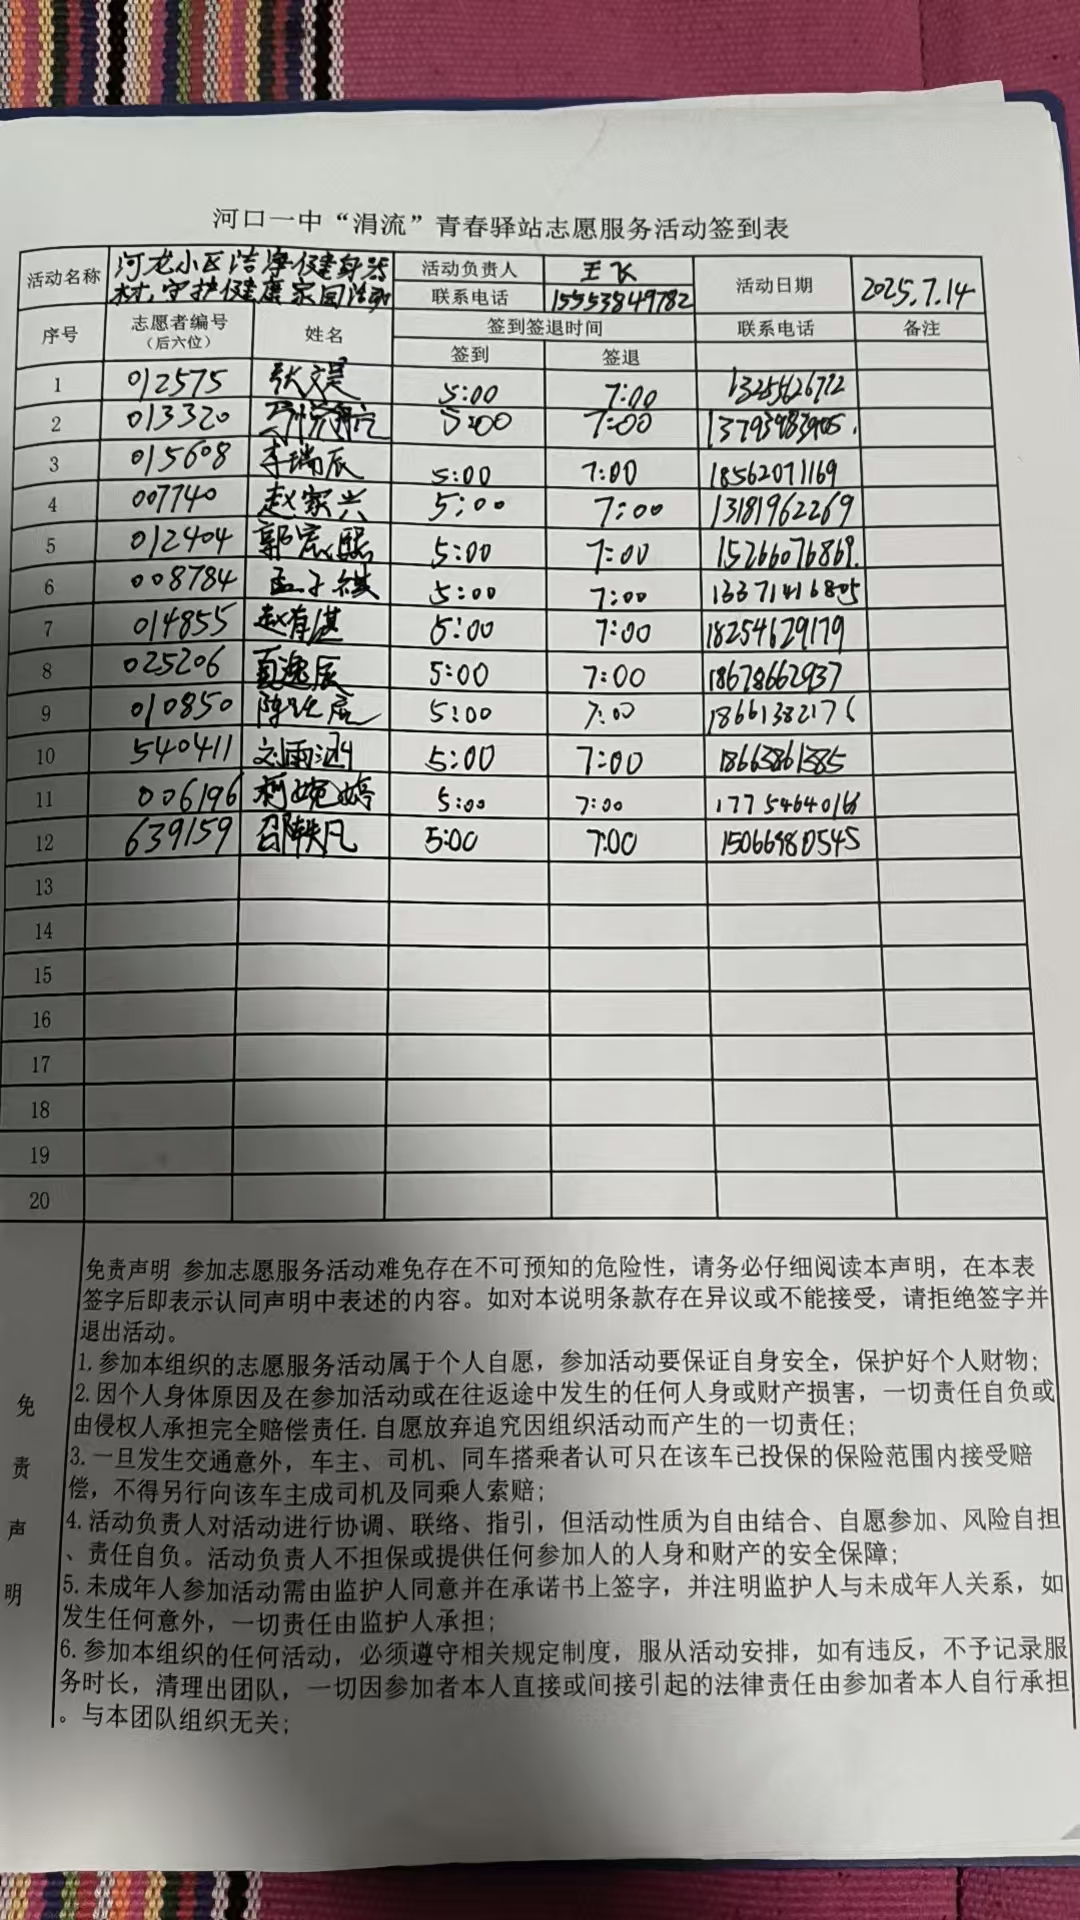 河口一中“涓流”青春驿站志愿服务活动签到表
活动名称 河龙小区洁净健身器材,守护健康家园活动 活动负责人 王飞 活动日期 2025.7.14
联系电话 15553849782
序号 志愿者编号（后六位） 姓名 签到签退时间 联系电话 备注
签到 签退
1 012575 张文昊 5:00 7:00
2 013320 5:00 7:00
3 015608 李瑞辰 5:00 7:00 18562071169
4 007740 赵家兴 5:00 7:00 13181962269
5 012404 郭宸熙 5:00 7:00 15266076869.
6 008784 孟子棋 5:00 7:00 13371416805
7 014855 赵有湛 5:00 7:00 18254629179
8 025206 5:00 7:00 18678662937
9 010850 5:00 7:00 18661382176
10 540411 刘雨涵 5:00 7:00 18663861385
11 006196 5:00 7:00
12 639159 邵轶凡 5:00 7:00 15066980545
13
14
15
16
17
18
19
20
免责声明
免责声明 参加志愿服务活动难免存在不可预知的危险性，请务必仔细阅读本声明，在本表
签字后即表示认同声明中表述的内容。如对本说明条款存在异议或不能接受，请拒绝签字并
退出活动。
1.参加本组织的志愿服务活动属于个人自愿，参加活动要保证自身安全，保护好个人财物；
2.因个人身体原因及在参加活动或在往返途中发生的任何人身或财产损害，一切责任自负或
由侵权人承担完全赔偿责任.自愿放弃追究因组织活动而产生的一切责任；
3.一旦发生交通意外，车主、司机、同车搭乘者认可只在该车已投保的保险范围内接受赔
偿，不得另行向该车主成司机及同乘人索赔；
4.活动负责人对活动进行协调、联络、指引，但活动性质为自由结合、自愿参加、风险自担
、责任自负。活动负责人不担保或提供任何参加人的人身和财产的安全保障；
5.未成年人参加活动需由监护人同意并在承诺书上签字，并注明监护人与未成年人关系，如
发生任何意外，一切责任由监护人承担；
6.参加本组织的任何活动，必须遵守相关规定制度，服从活动安排，如有违反，不予记录服
务时长，清理出团队，一切因参加者本人直接或间接引起的法律责任由参加者本人自行承担
。与本团队组织无关；